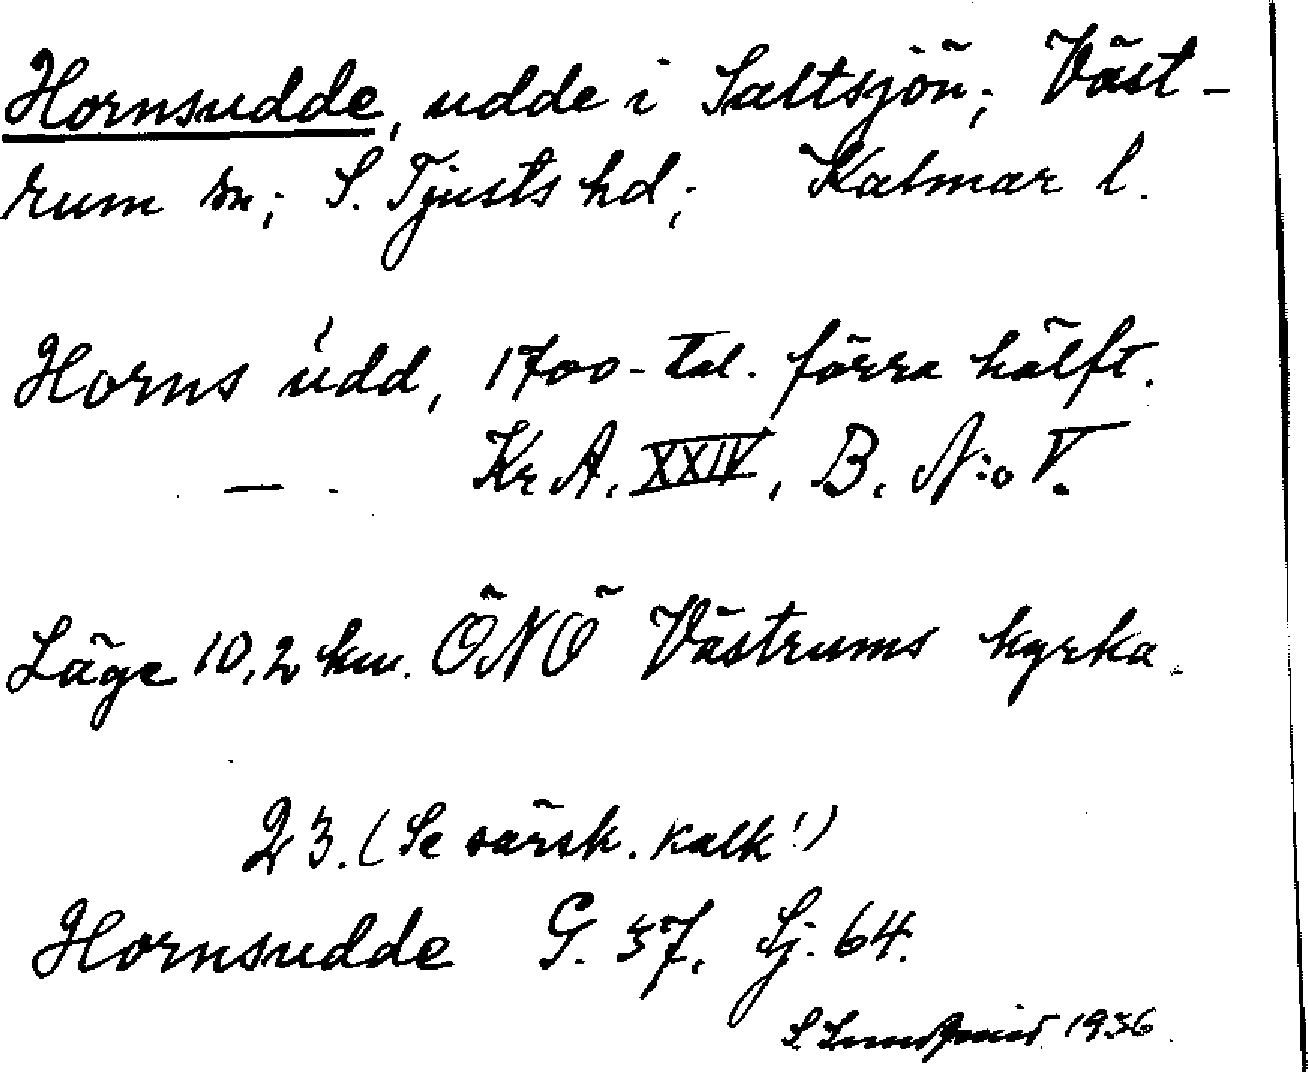 Hornsudde, udde i Saltsjön; Väst-
rum sn; S. Tjusts hd; Kalmar l.
Horns udd, 1700-tal. förra hälft.
— Kr. A. XXIV, B. N:o V.
Läge 10,2 km. ÖNÖ Västrums kyrka.
23. (Se särsk. kalk!)
Hornsudde G. 37, Sj. 64.
S. 1936